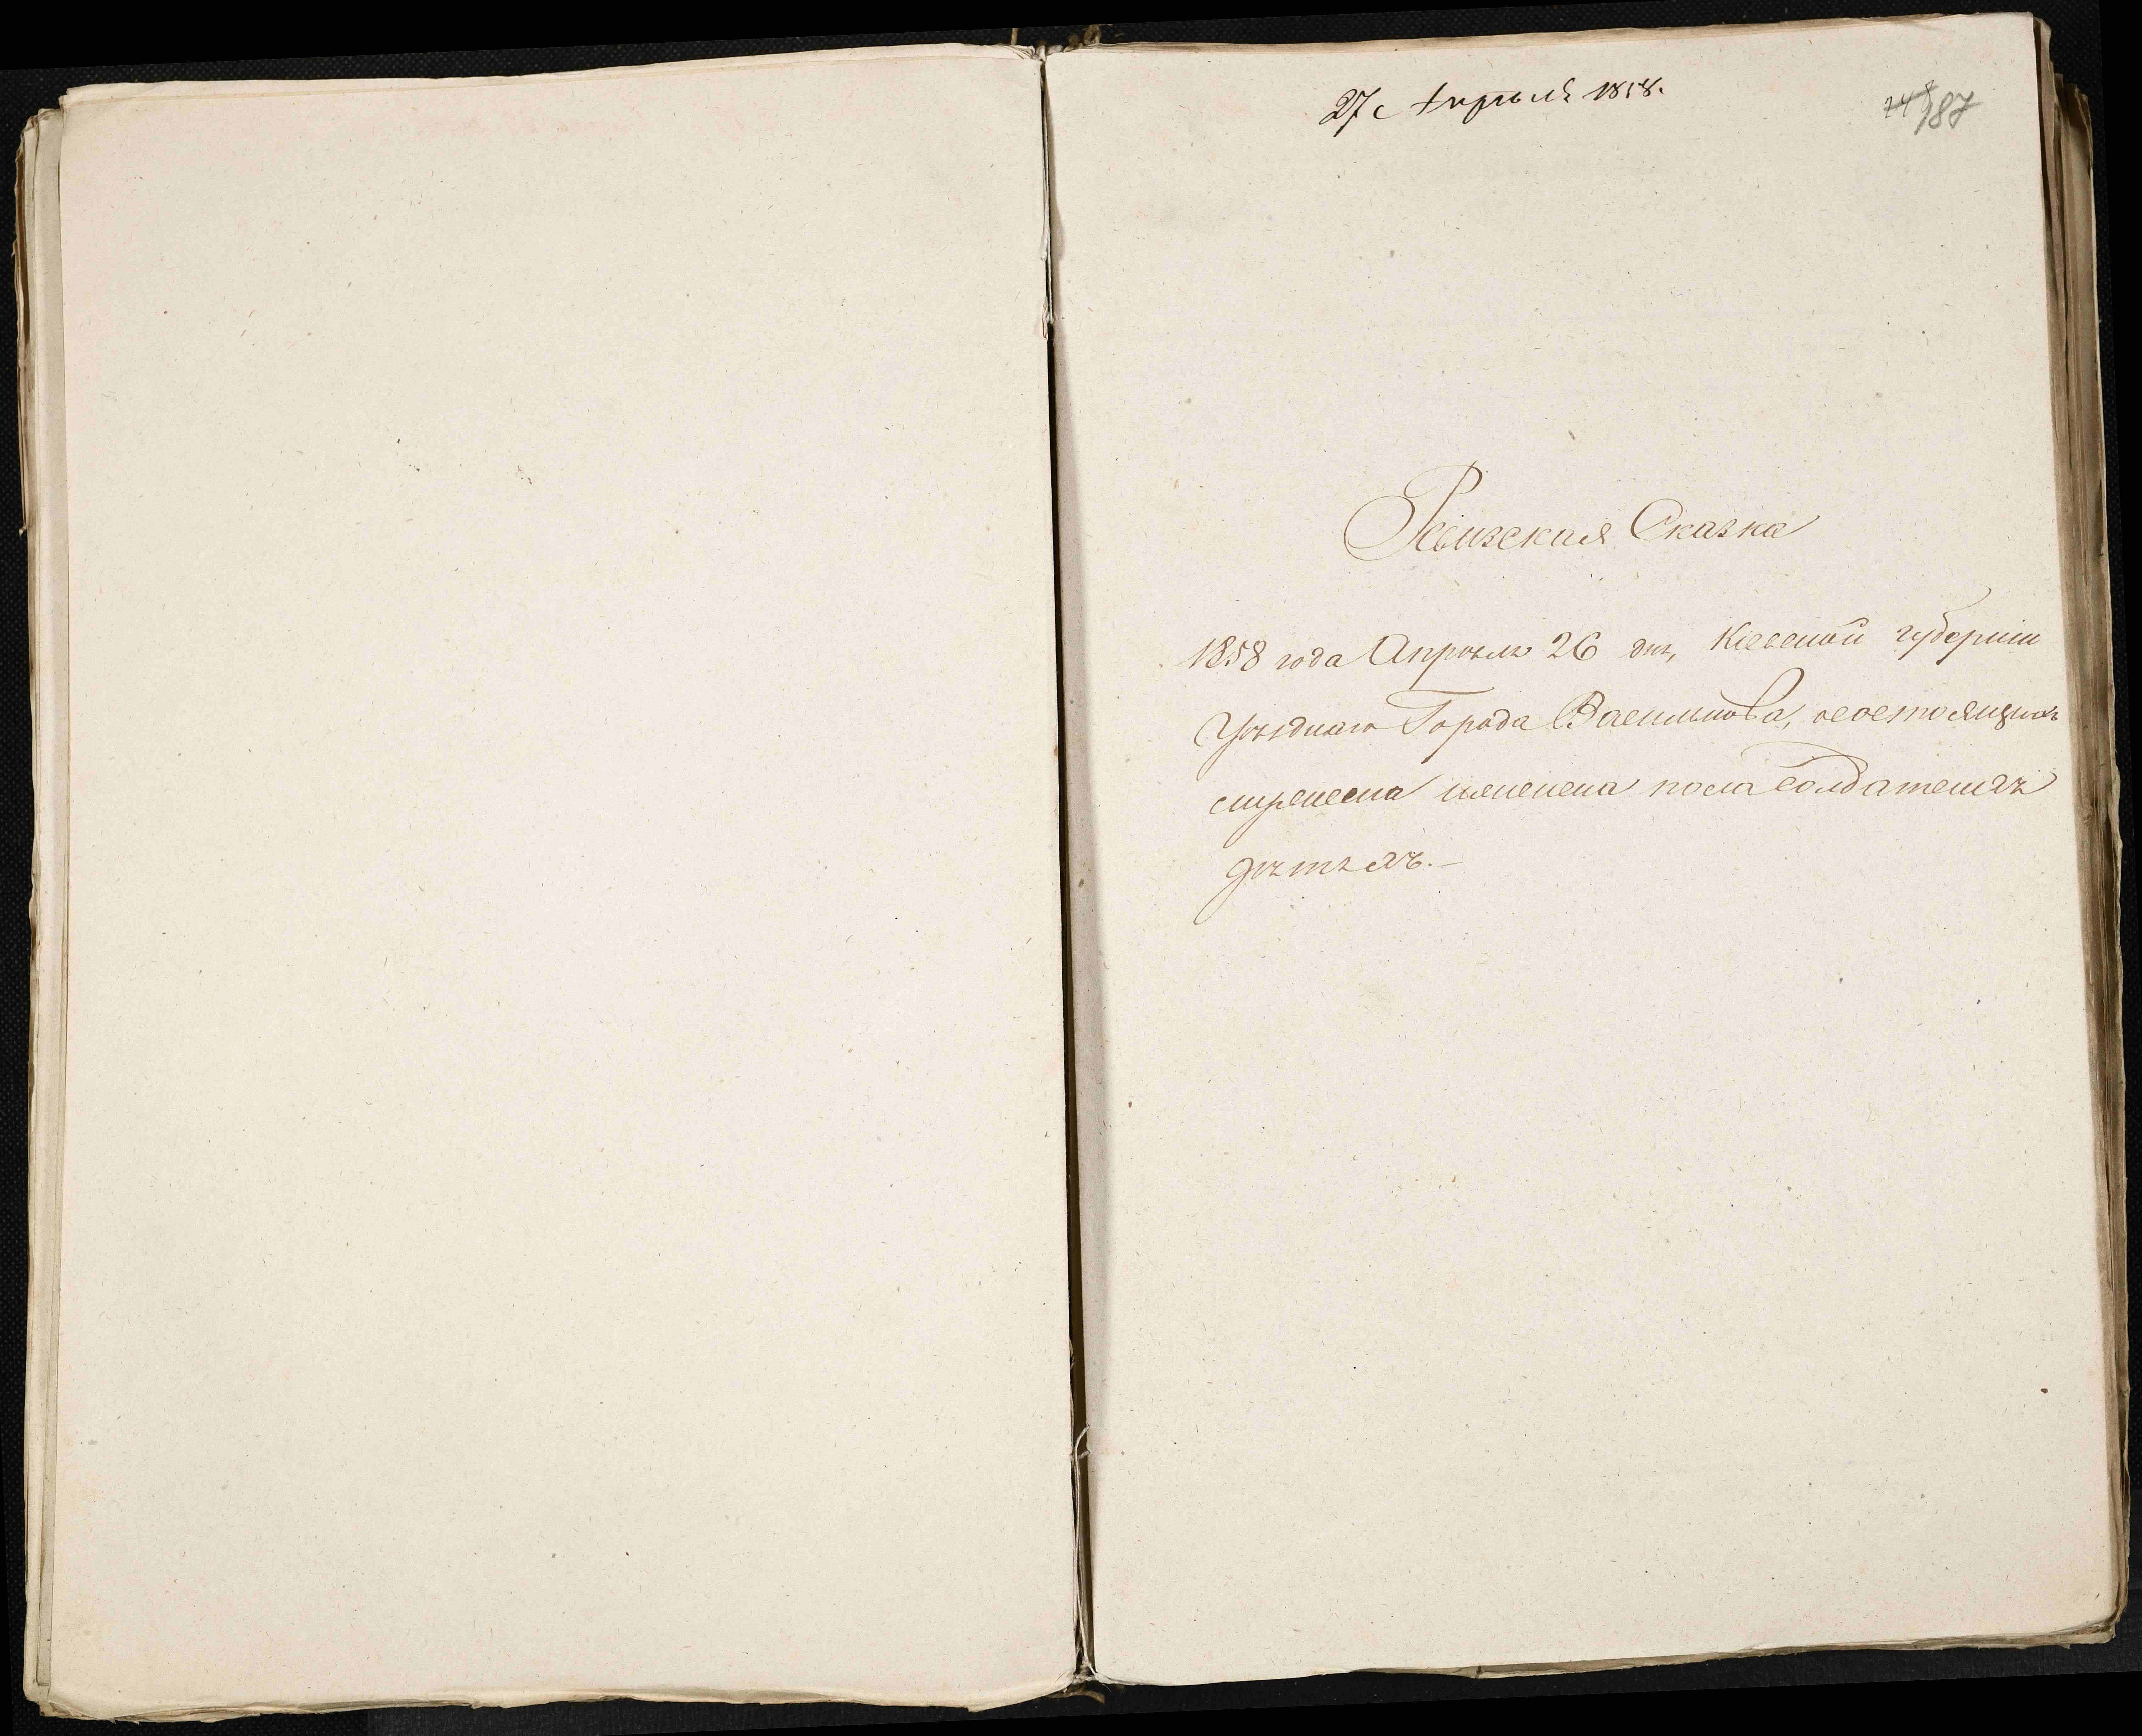 27 Апрѣля 1858.
187
Ревизская Сказка
1858 года Апрѣля 26 дня, Кіевской губерніи
Уѣзднаго Города Василькова, о состоящихъ
женска пола солдатскихъ
дѣтяхъ.—